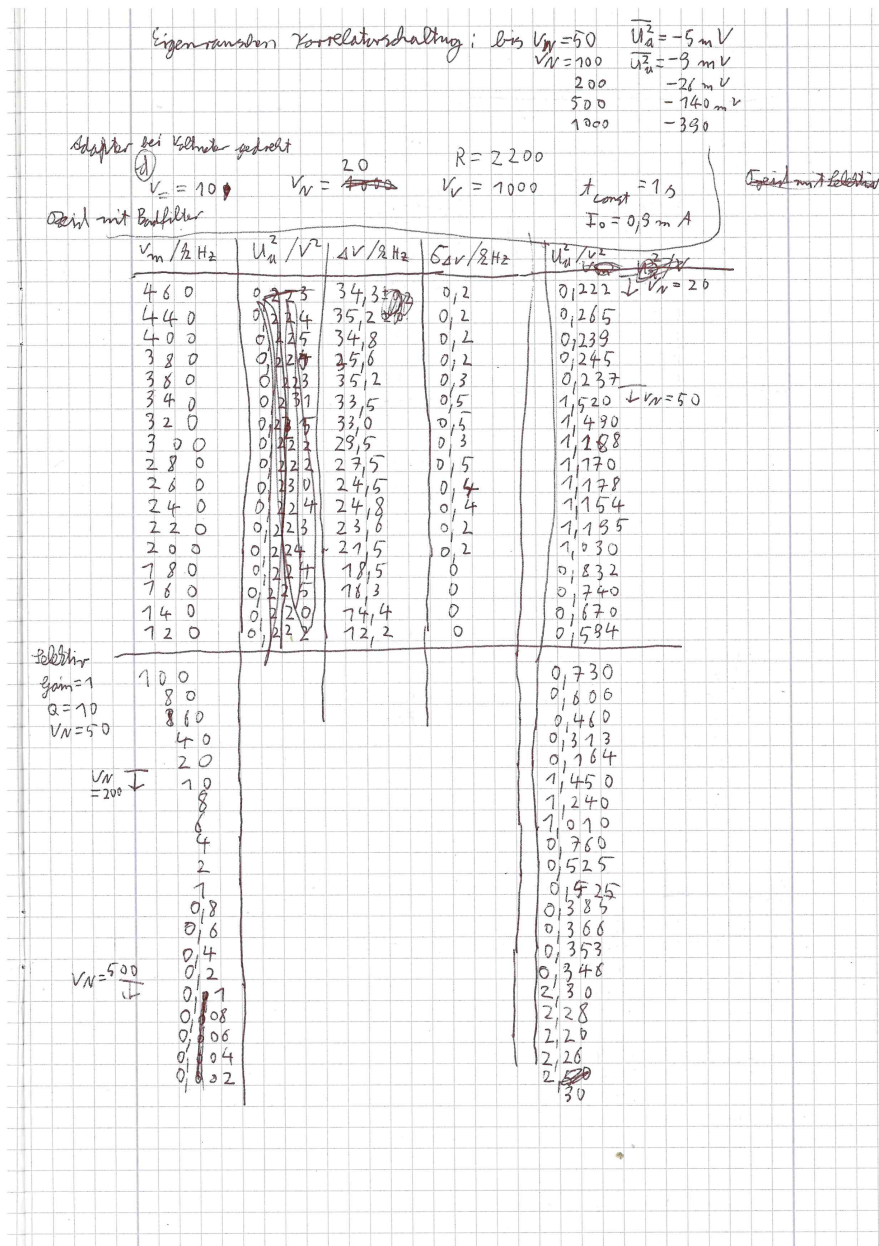 Eigenrauschen Korrelatorschaltug: bis V_N = 50 \overline{U_a^2} = -5 mV
V_N = 100 \overline{U_u^2} = -9 mV
200 -26 mV
500 -140 mV
1000 -390
Adapter bei Voltmeter gedreht
20
d) V_= = 10 V_N = R = 2200 V_V = 1000 t_const = 1 s
I_0 = 0,9 mA
mit Badfilter
V_m / kHz U_u^2 / V^2 ΔV / kHz σ_ΔV / kHz U_u^2 / V^2
460 0,223 34,3 0,2 0,222 ↓ V_N = 20
440 0,224 35,2 0,2 0,265
400 0,225 34,8 0,2 0,239
380 0,224 25,6 0,2 0,245
360 0,223 35,2 0,3 0,237
340 0,231 33,5 0,5 1,520 ↓ V_N = 50
320 0,235 33,0 0,5 1,490
300 0,222 29,5 0,3 1,188
280 0,222 27,5 0,5 1,170
260 0,230 24,5 0,4 1,178
240 0,224 24,8 0,4 1,154
220 0,223 23,6 0,2 1,195
200 0,224 21,5 0,2 1,030
180 0,224 18,5 0 0,832
160 0,225 16,3 0 0,740
140 0,220 14,4 0 0,670
120 0,222 12,2 0 0,594
Selektiv
Gain = 1 100 0,730
Q = 10 80 0,606
V_N = 50 60 0,460
40 0,313
20 0,164
V_N = 200 ↓ 10 1,450
8 1,240
6 1,010
4 0,760
2 0,525
1 0,425
0,8 0,385
0,6 0,366
0,4 0,353
0,2 0,346
V_N = 500 ↓ 0,1 2,30
0,08 2,28
0,06 2,20
0,04 2,26
0,02 2,30